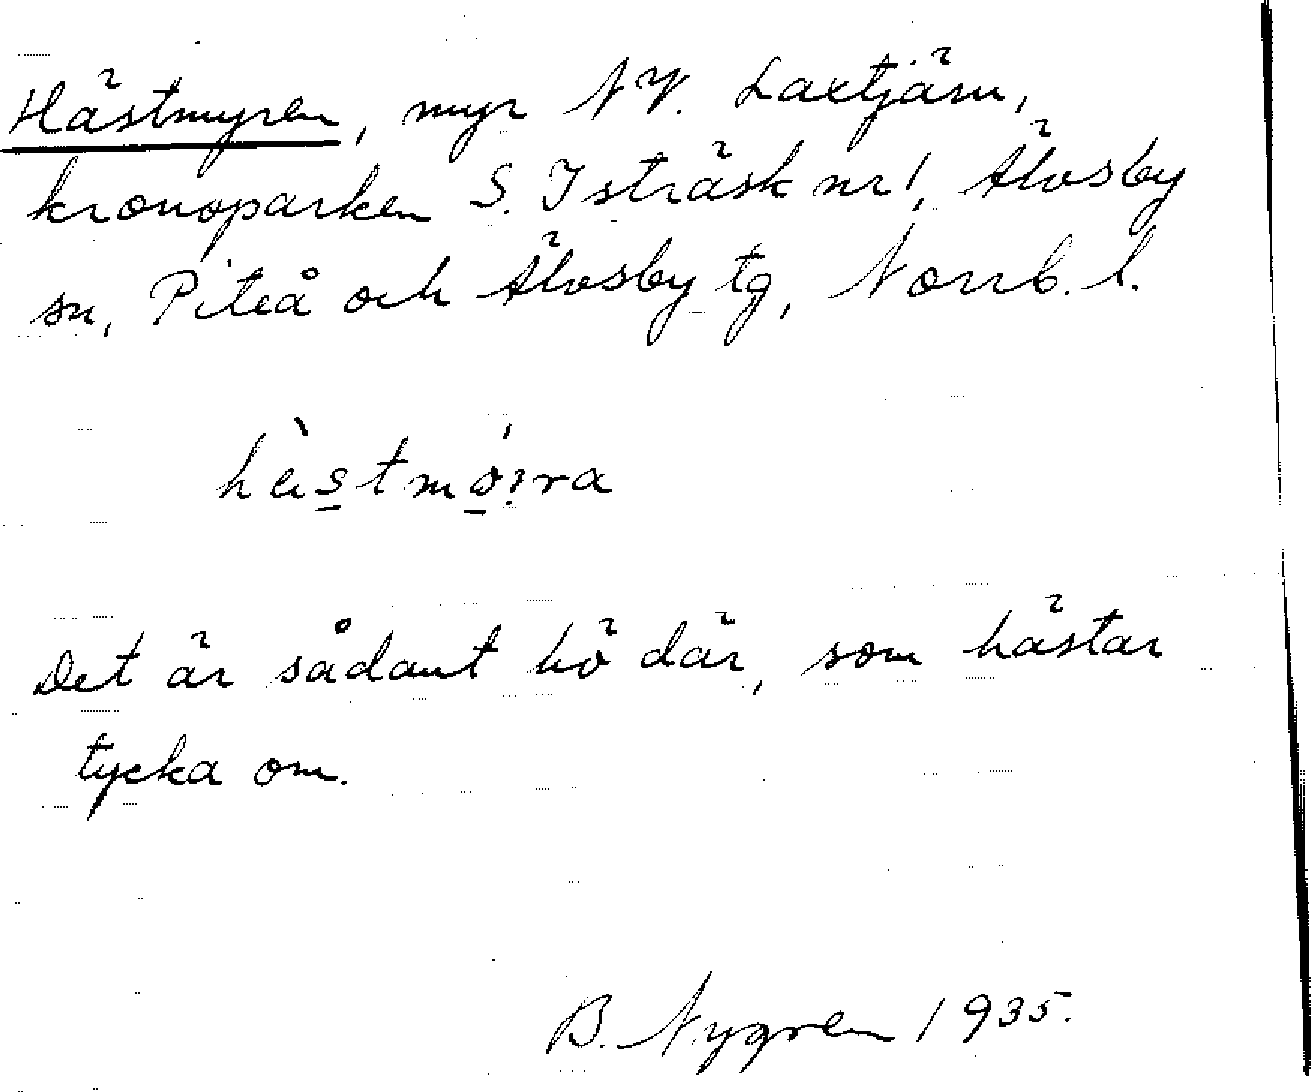 Hästmyren, myr NV. Laxtjärn,
kronoparken S. Isträsk nr 1, Älvsby
sn, Piteå och Älvsby tg, Norrb. l.
Det är sådant hö där, som hästar
tycka om.
B. Nygren 1935.